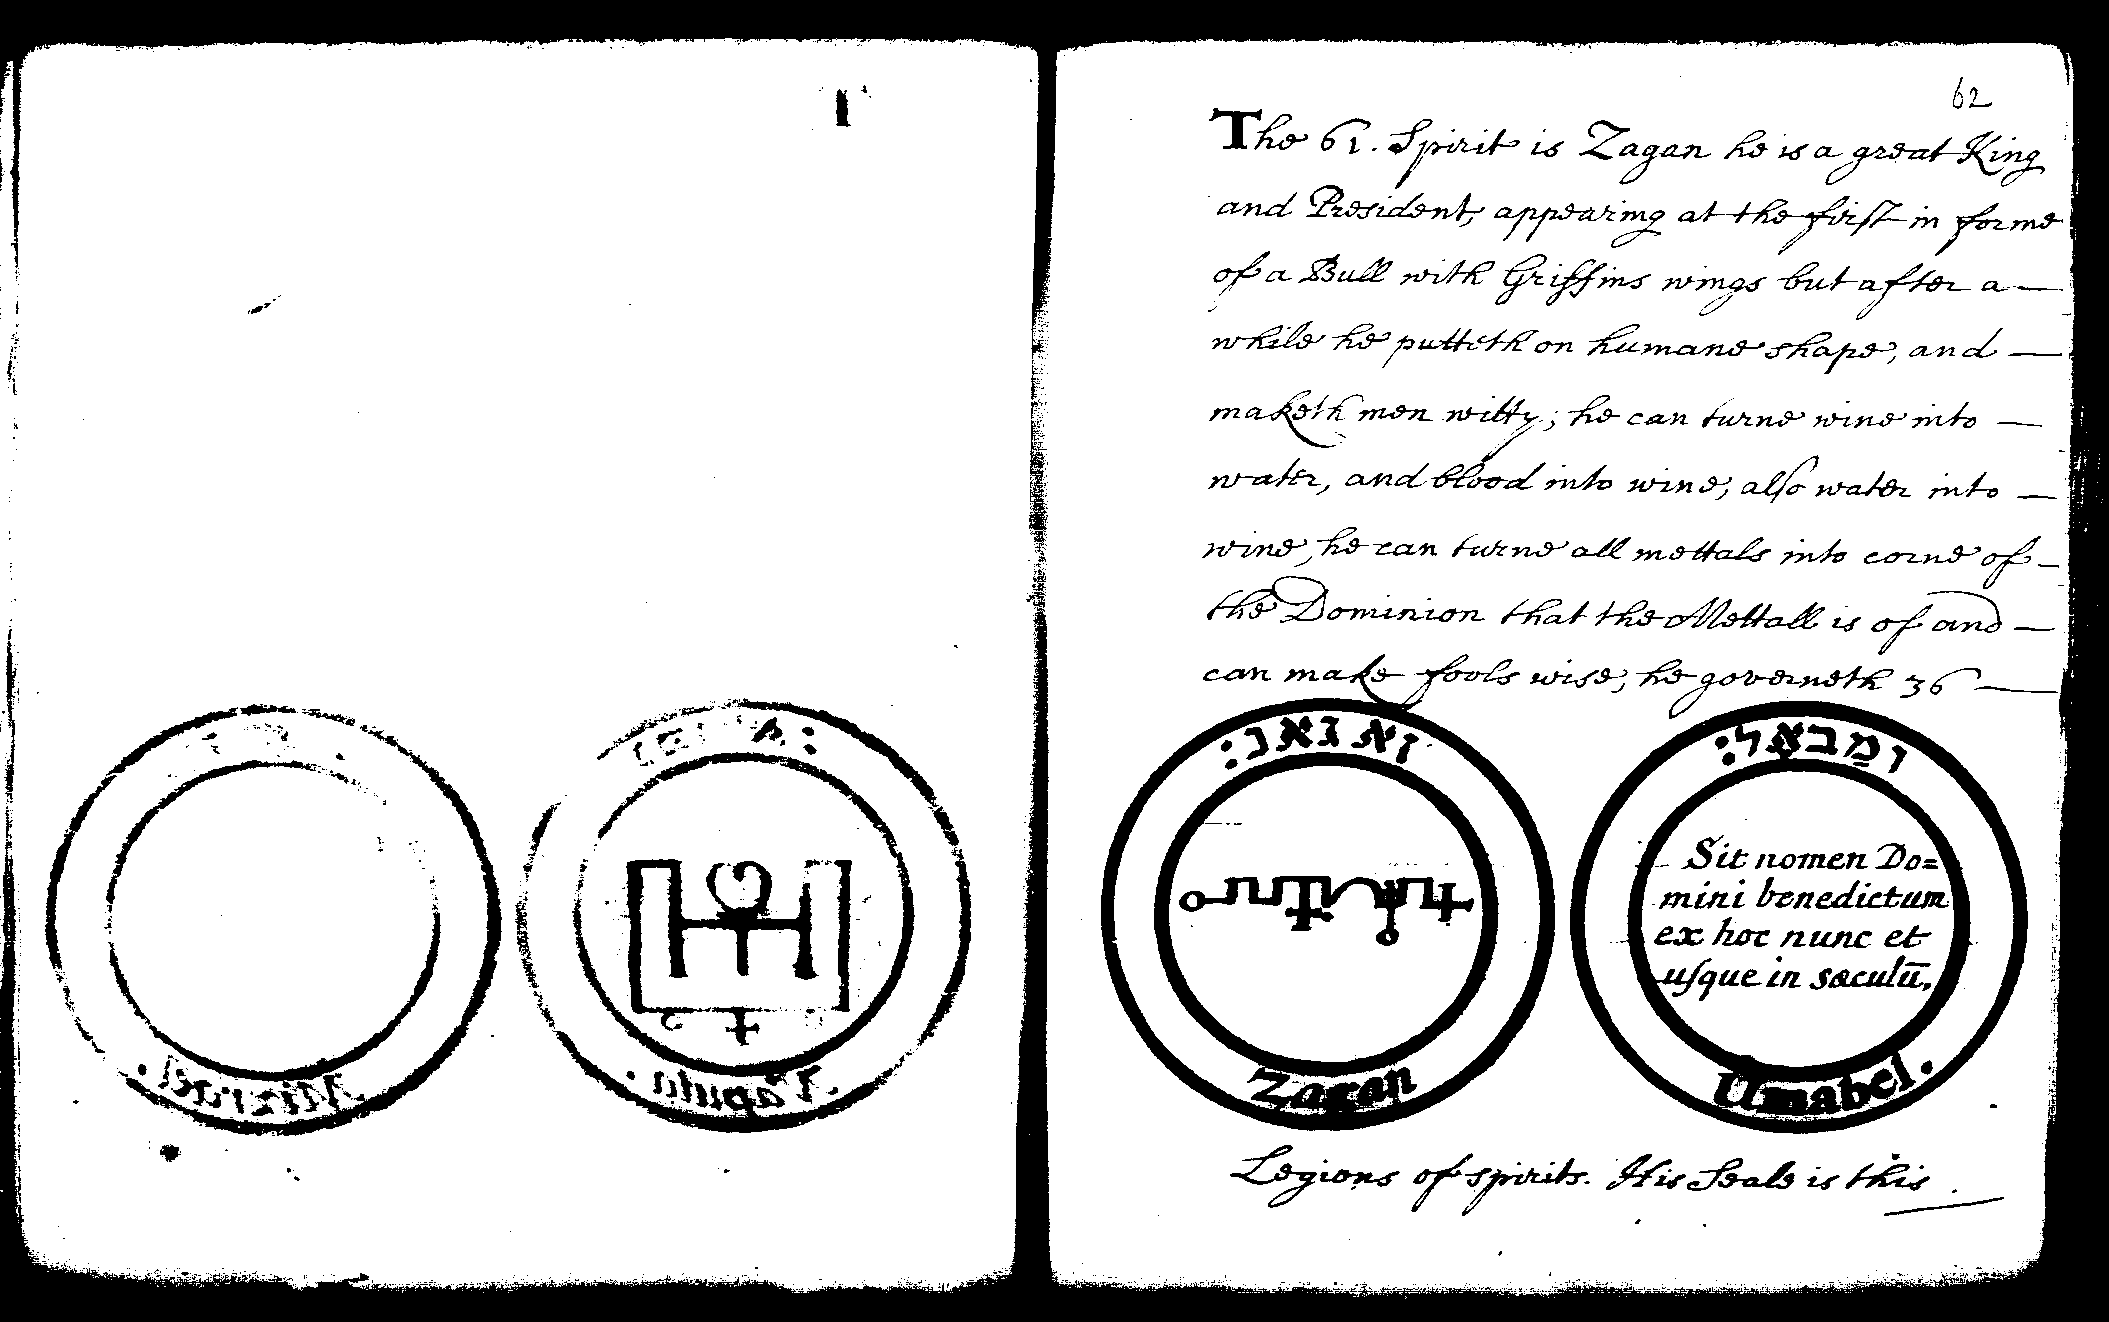 62
The 61. Spirit is Zagan he is a great King
and President, appearing at the first in forme
of a Bull with Griffins wings but after a —
while he putteth on humane shape, and —
maketh men witty; he can turne wine into —
water, and blood into wine, also water into —
wine, he can turne all mettals into corne of —
the Dominion that the Mettall is of and —
can make fools wise, he governeth 36 —
זאגאנ:
Zagan
ומבאל:
Sit nomen Do=
mini benedictum
ex hoc nunc et
usque in sæculū.
Umabel.
Legions of spirits. His Seale is this